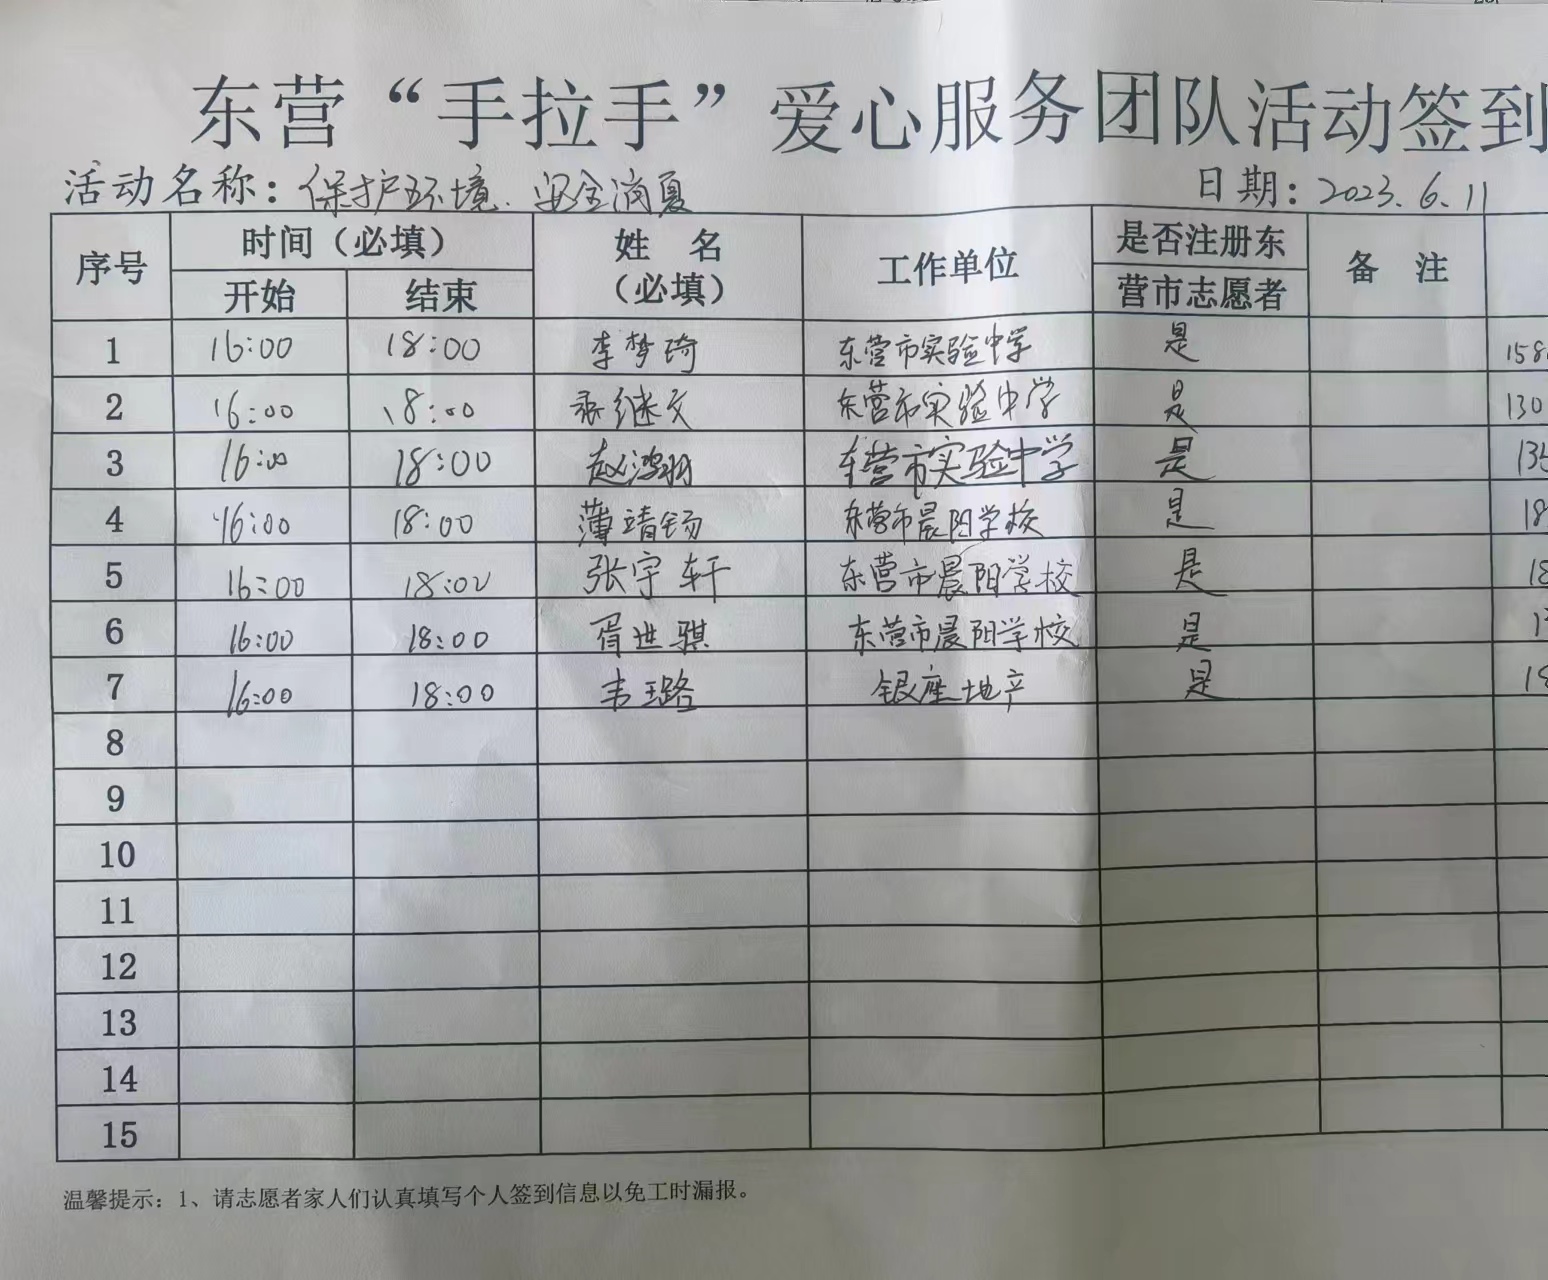 东营“手拉手”爱心服务团队活动签到
活动名称：保护环境、安全消夏 日期：2023.6.11
序号 时间（必填） 姓 名（必填） 工作单位 是否注册东营市志愿者 备 注
开始 结束
1 16:00 18:00 李梦琦 东营市实验中学 是 158
2 16:00 18:00 继文 东营市实验中学 是 130
3 16:00 18:00 赵鸿羽 东营市实验中学 是 135
4 16:00 18:00 薄靖钖 东营市晨阳学校 是 18
5 16:00 18:00 张宇轩 东营市晨阳学校 是 18
6 16:00 18:00 胥进骐 东营市晨阳学校 是
7 16:00 18:00 韦玉路 银座地产 是 18
8
9
10
11
12
13
14
15
温馨提示：1、请志愿者家人们认真填写个人签到信息以免工时漏报。